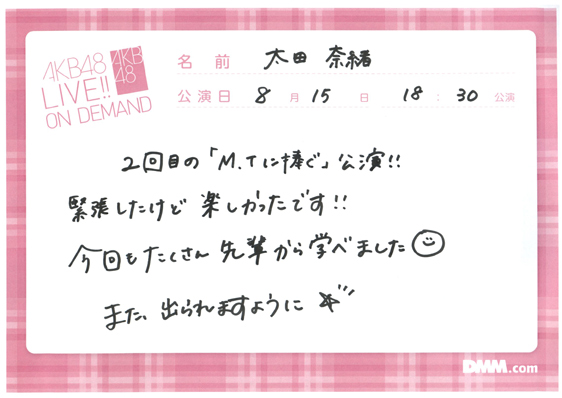 AKB48
LIVE!!
ON DEMAND
AKB
48
名前 太田 奈緒
公演日 8月15日 18:30公演
2回目の「M.Tに捧ぐ」公演!!
緊張したけど 楽しかったです!!
今回もたくさん 先輩から学べました
また、出られますように
DMM.com